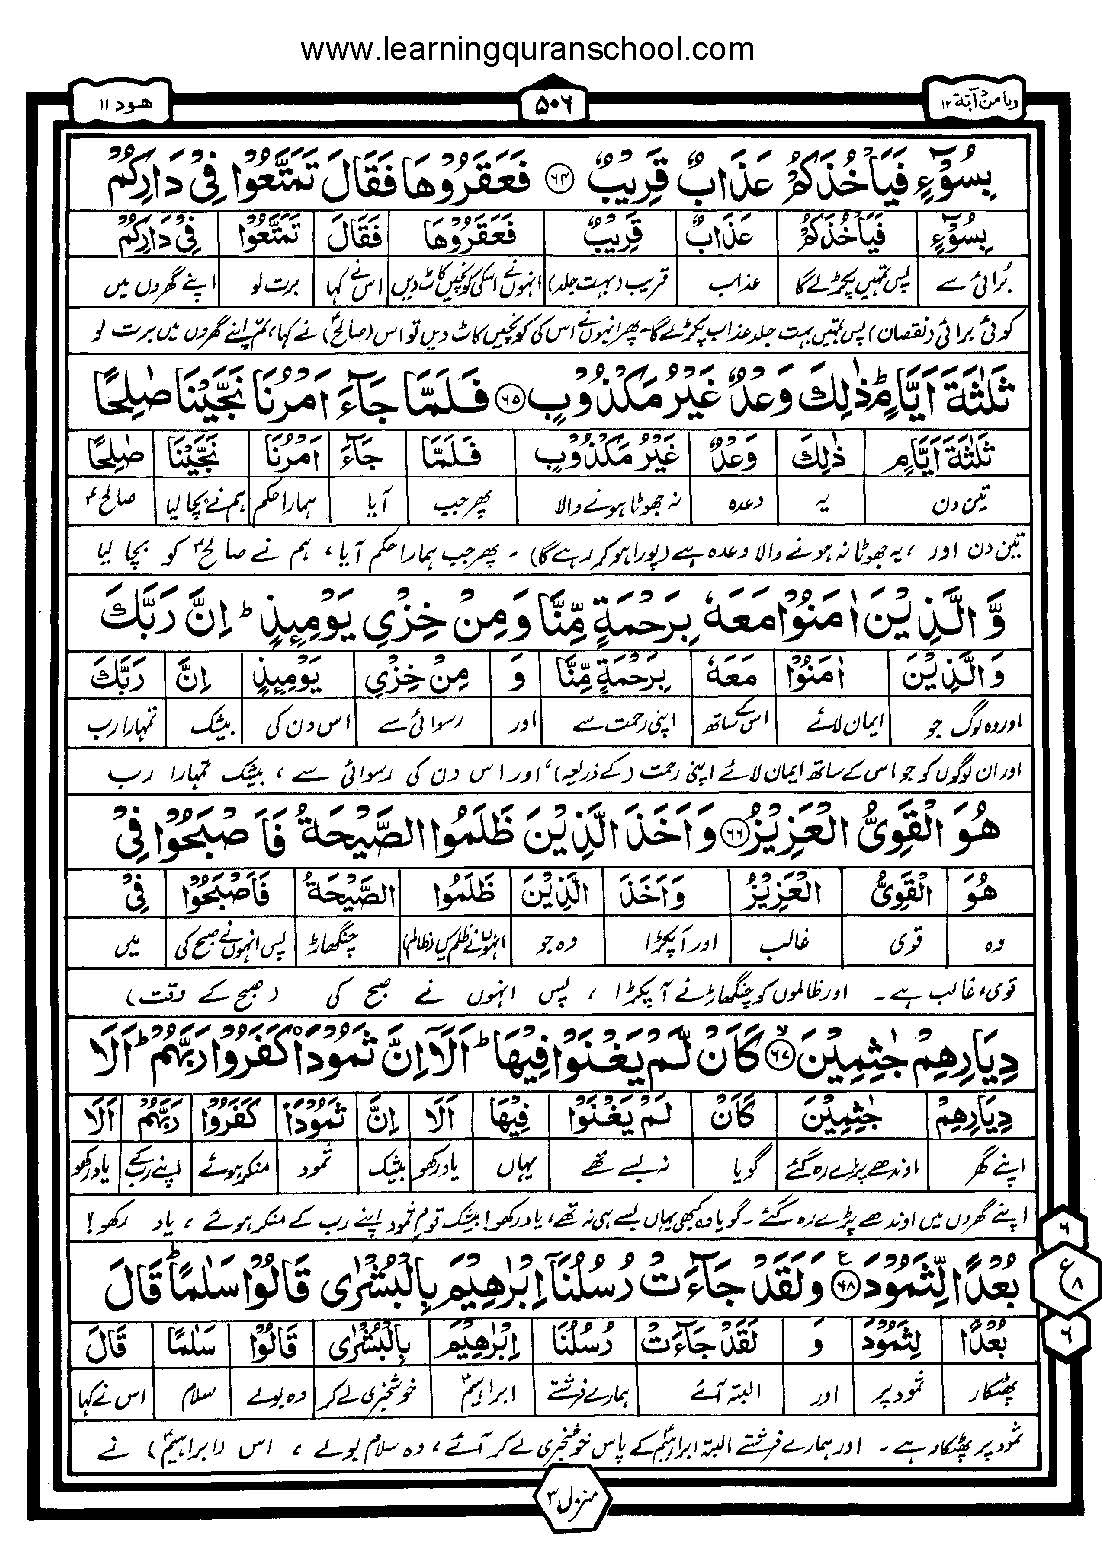 www.learningquranschool.com
ھود ۱۱
۵۰۶
ومامن دآبۃ ۱۲
بِسُوْٓءٍ فَيَاْخُذَكُمْ عَذَابٌ قَرِيْبٌ ﴿۶۴﴾ فَعَقَرُوْهَا فَقَالَ تَمَتَّعُوْا فِيْ دَارِكُمْ
بِسُوْٓءٍ فَيَاْخُذَكُمْ عَذَابٌ قَرِيْبٌ فَعَقَرُوْهَا فَقَالَ تَمَتَّعُوْا فِيْ دَارِكُمْ
بُرائی سے پس تمہیں پکڑے گا عذاب قریب (بہت جلد) انہوں نے اسکی کونچیں کاٹ دیں اس نے کہا برت لو اپنے گھروں میں
کوئی برائی (نقصان) پس تمہیں بہت جلد عذاب پکڑے گا۔ پھر انہوں نے اس کی کونچیں کاٹ دیں تو اس (صالحؑ) نے کہا، تم اپنے گھروں میں برت لو
ثَلٰثَةَ اَيَّامٍ ؕ ذٰلِكَ وَعْدٌ غَيْرُ مَكْذُوْبٍ ﴿۶۵﴾ فَلَمَّا جَآءَ اَمْرُنَا نَجَّيْنَا صٰلِحًا
ثَلٰثَةَ اَيَّامٍ ذٰلِكَ وَعْدٌ غَيْرُ مَكْذُوْبٍ فَلَمَّا جَآءَ اَمْرُنَا نَجَّيْنَا صٰلِحًا
تین دن یہ وعدہ نہ جھوٹا ہونے والا پھر جب آیا ہمارا حکم ہم نے بچا لیا صالحؑ
تین دن اور ، یہ جھوٹا نہ ہونے والا وعدہ ہے (پورا ہو کر رہے گا) ۔ پھر جب ہمارا حکم آیا، ہم نے صالحؑ کو بچا لیا
وَّالَّذِيْنَ اٰمَنُوْا مَعَهٗ بِرَحْمَةٍ مِّنَّا وَمِنْ خِزْيِ يَوْمِئِذٍ ؕ اِنَّ رَبَّكَ
وَالَّذِيْنَ اٰمَنُوْا مَعَهٗ بِرَحْمَةٍ مِّنَّا وَ مِنْ خِزْيِ يَوْمِئِذٍ اِنَّ رَبَّكَ
اور وہ لوگ جو ایمان لائے اس کے ساتھ اپنی رحمت سے اور رسوائی سے اس دن کی بیشک تمہارا رب
اور ان لوگوں کو جو اس کے ساتھ ایمان لائے اپنی رحمت (کے ذریعہ)، اور اس دن کی رسوائی سے ، بیشک تمہارا رب
هُوَ الْقَوِيُّ الْعَزِيْزُ ﴿۶۶﴾ وَاَخَذَ الَّذِيْنَ ظَلَمُوا الصَّيْحَةُ فَاَصْبَحُوْا فِيْ
هُوَ الْقَوِيُّ الْعَزِيْزُ وَاَخَذَ الَّذِيْنَ ظَلَمُوا الصَّيْحَةُ فَاَصْبَحُوْا فِيْ
وہ قوی غالب اور آپکڑا وہ جو انہوں نے ظلم کیا (ظالم) چنگھاڑ پس انہوں نے صبح کی میں
قوی، غالب ہے۔ اور ظالموں کو چنگھاڑ نے آپکڑا ، پس انہوں نے صبح کی (صبح کے وقت)
دِيَارِهِمْ جٰثِمِيْنَ ﴿۶۷﴾ كَاَنْ لَّمْ يَغْنَوْا فِيْهَا ؕ اَلَآ اِنَّ ثَمُوْدَا۟ كَفَرُوْا رَبَّهُمْ ؕ اَلَا
دِيَارِهِمْ جٰثِمِيْنَ كَاَنْ لَمْ يَغْنَوْا فِيْهَا اَلَا اِنَّ ثَمُوْدَا۟ كَفَرُوْا رَبَّهُمْ اَلَا
اپنے گھر اوندھے پڑے رہ گئے گویا نہ بسے تھے یہاں یاد رکھو بیشک ثمود منکر ہوئے اپنے رب کے یاد رکھو
اپنے گھروں میں اوندھے پڑے رہ گئے۔ گویا وہ کبھی یہاں بسے ہی نہ تھے، یاد رکھو! بیشک قوم ثمود اپنے رب کے منکر ہوئے ، یاد رکھو!
۶
ع
۸
۶
بُعْدًا لِّثَمُوْدَ ﴿۶۸﴾ وَلَقَدْ جَآءَتْ رُسُلُنَآ اِبْرٰهِيْمَ بِالْبُشْرٰى قَالُوْا سَلٰمًا ؕ قَالَ
بُعْدًا لِثَمُوْدَ وَ لَقَدْ جَآءَتْ رُسُلُنَا اِبْرٰهِيْمَ بِالْبُشْرٰى قَالُوْا سَلٰمًا قَالَ
پھٹکار ثمود پر اور البتہ آئے ہمارے فرشتے ابراہیمؑ خوشخبری لے کر وہ بولے سلام اس نے کہا
ثمود پر پھٹکار ہے۔ اور ہمارے فرشتے البتہ ابراہیمؑ کے پاس خوشخبری لے کر آئے، وہ سلام بولے ، اس (ابراہیمؑ) نے
منزل ۳